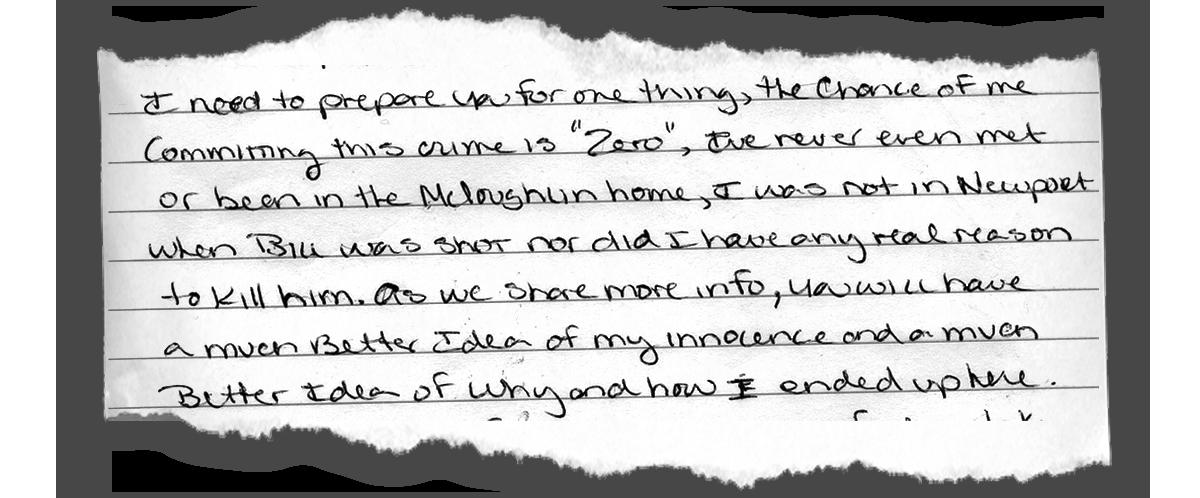 I need to prepare you for one thing, the Chance of me
Commiting this crime is "Zero", I've never even met
or been in the Mcloughlin home, I was not in Newport
when Bill was shot nor did I have any real reason
to kill him. As we share more info, you will have
a much Better Idea of my innocence and a much
Better Idea of why and how I ended up here.